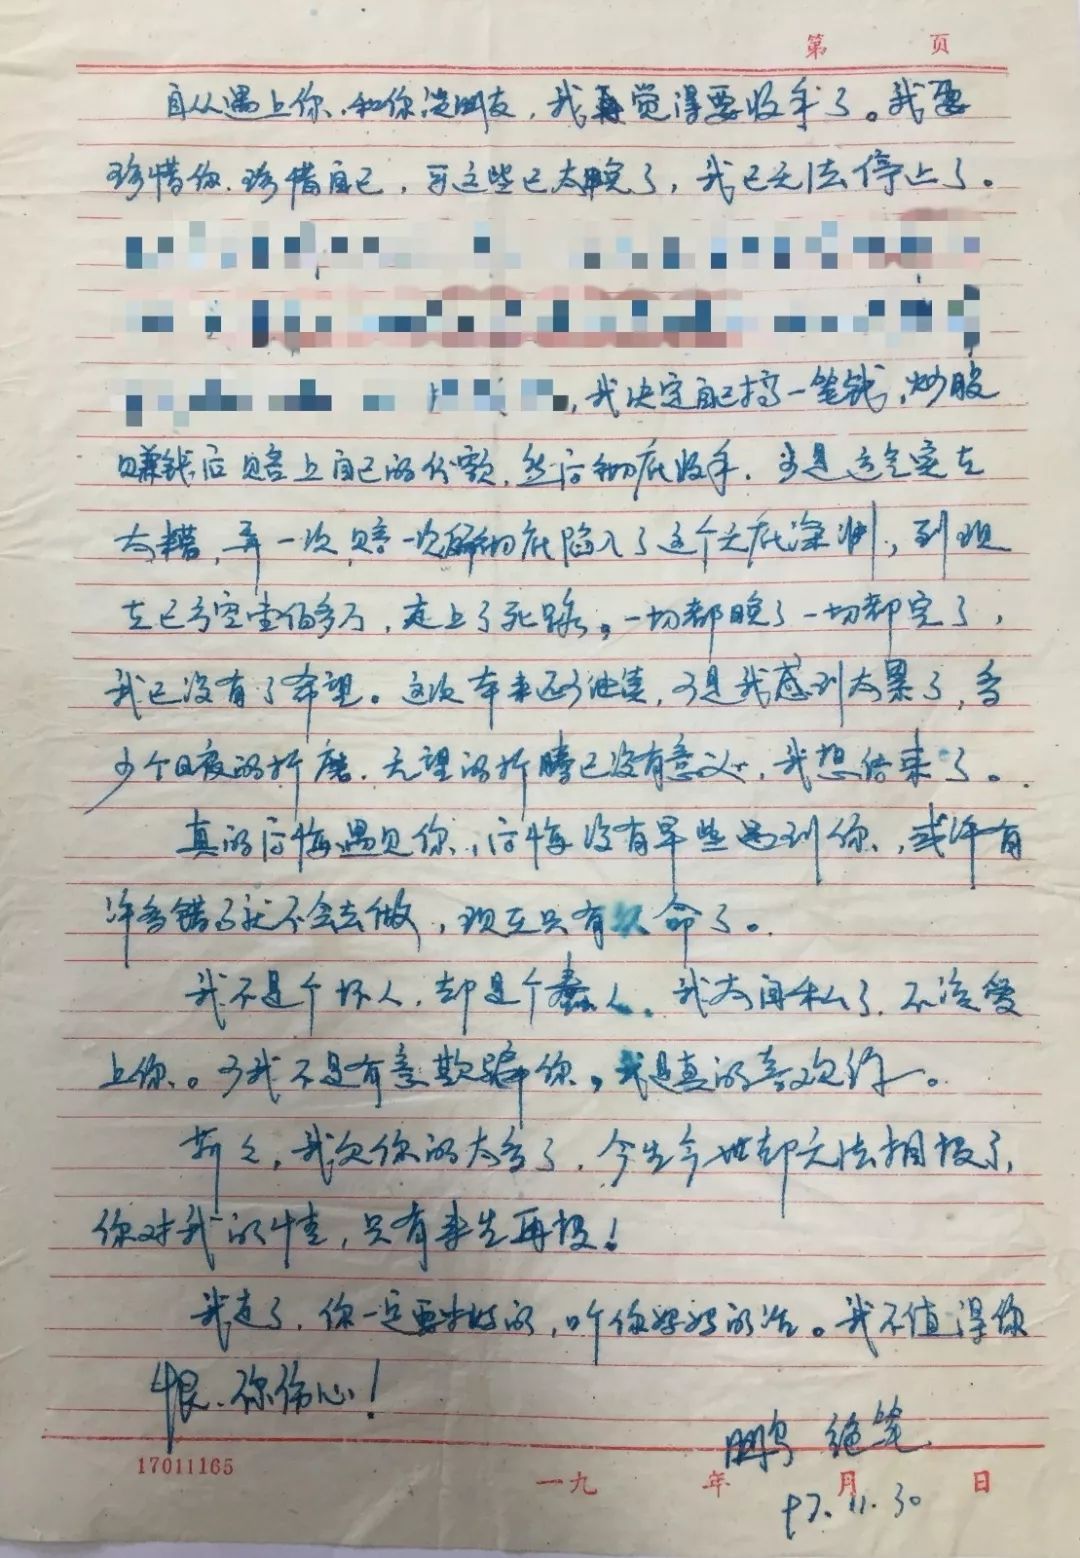 第 页
自从遇上你、和你谈朋友，我再觉得要收手了。我要
珍惜你、珍惜自己，可这些已太晚了，我已无法停止了。
，我决定自己搞一笔钱，炒股
赚钱后赔上自己的份额，然后彻底收手，可是运气实在
太糟，弄一次赔一次，彻底陷入了这个无底深渊，到现
在已亏空壹佰多万，走上了死路。一切都晚了一切都完了，
我已没有了希望。这次本来还可继续，可是我感到太累了，多
少个日夜的折磨、无望的折腾已没有意义，我想结束了。
真的后悔遇见你，后悔没有早些遇到你，或许有
许多错事就不会去做，现在只有 命了。
我不是个坏人，却是个蠢人。我太自私了，不该爱
上你。可我不是有意欺骗你，我是真的喜欢你。
，我欠你的太多了，今生今世却无法相报了，
你对我的情，只有来生再报！
我走了，你一定要 好的，听你好好的活。我不值得你
恨、你伤心！
鹏 绝笔
97.11.30
17011165 一九 年 月 日